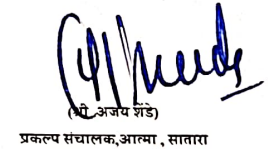 (श्री .अजय शेंडे)
प्रकल्प संचालक,आत्मा , सातारा